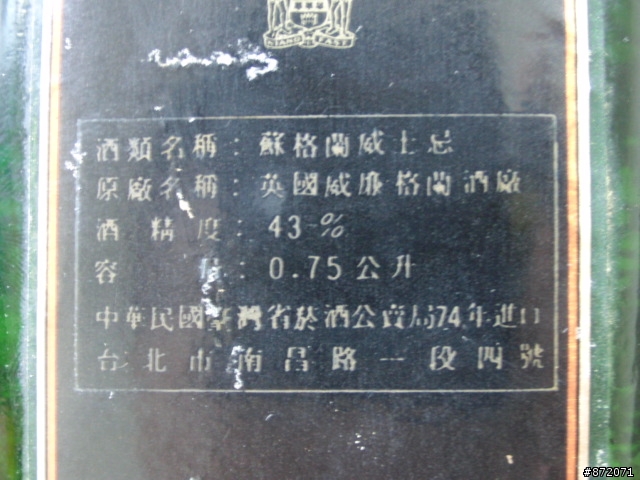 STAND FAST
酒類名稱：蘇格蘭威士忌
原廠名稱：英國威廉格蘭酒廠
酒精度：43%
容量：0.75公升
中華民國臺灣省菸酒公賣局74年進口
台北市南昌路一段四號
#872071